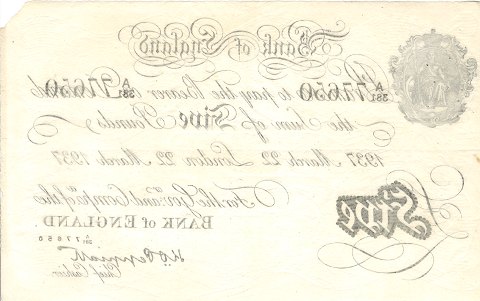 Bank of England
A/381 77650 to pay the Bearer A/381 77650
the Sum of Five Pounds
1937 March 22 London 22 March 1937
For the Gov.r and Comp.a of the
Five
BANK of ENGLAND.
A/381 77650
Chief Cashier